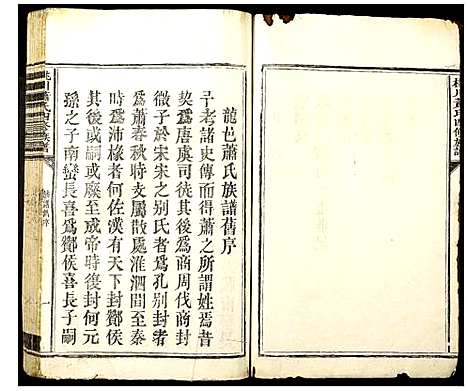 龍邑蕭氏族譜舊序
予老諸史傳而得蕭之所謂姓焉昔
契爲唐虞司徒其後爲商周伐商封
微子於宋宋之別氏者爲孔別封者
爲蕭春秋時支屬散處淮泗間至秦
時爲沛椽者何佐漢有天下封酇侯
其後或嗣或廢至成帝時復封何元
孫之子南䜌長喜爲酇侯喜長子嗣